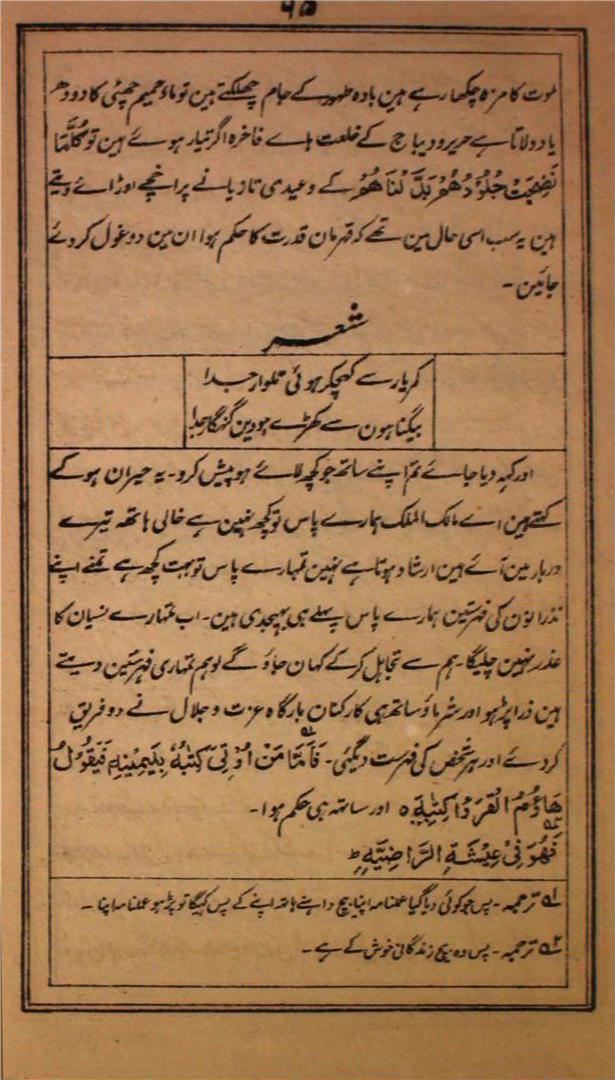 ۶۵
موت کا مزہ چکھا رہے ہین بادہ طہور کے جام چھلکتے ہین تو ماءٌ حمیم چھٹی کا دودھ
یاد دلاتا ہے حریر و دیباج کے خلعت ہاے فاخرہ اگر تیار ہوئے ہین تو کُلَّمَا
نَضِجَتْ جُلُوْدُهُمْ بَدَّلْنَاهُمْ کے وعیدی تازیانے پراخچے اوڑائے دیتے
ہین یہ سب اسی حال مین تھے کہ قہرمان قدرت کا حکم ہوا ان مین دو غول کر دئے
جائین۔
شعر
کمر یار سے کھچکر ہوئی تلوار جدا
بیگناہون سے کھڑے ہووین گنہگار جدا
اور کہہ دیا جائے تم اپنے ساتھ جو کچھ لائے ہو پیش کرو۔ یہ حیران ہو کے
کہتے ہین اے مالک الملک ہمارے پاس تو کچھ نہین ہے خالی ہاتھ تیرے
دربار مین آئے ہین ارشاد ہوتا ہے نہین تمہارے پاس تو بہت کچھ ہے تمنے اپنے
نذرانون کی فہرستین ہمارے پاس پہلے ہی بھیجدی ہین۔ اب تمہارے نسیان کا
عذر نہین چلیگا۔ ہم سے تجاہل کر کے کہان جاؤ گے لو ہم تمہاری فہرستین دیتے
ہین ذرا پڑھو اور شرماؤ ساتھ ہی کارکنان بارگاہ عزت و جلال نے دو فریق
کر دئے اور ہر شخص کی فہرست دیگئی۔ فَاَمَّا مَنْ اُوْتِیَ كِتٰبَهٗ بِیَمِیْنِهٖ فَیَقُوْلُ
هَاؤُمُ اقْرَءُوْا كِتٰبِیَهْ ٥ اور ساتھ ہی حکم ہوا۔
فَهُوَ فِیْ عِیْشَةِ الرَّاضِیَةِ ط
۱؎ ترجمہ۔ پس جو کوئی دیا گیا عملنامہ اپنا بیچ داہنے ہاتھ اپنے کے پس کہیگا تو پڑھو عملنامہ اپنا۔
۲؎ ترجمہ۔ پس وہ بیچ زندگانی خوش کے ہے۔